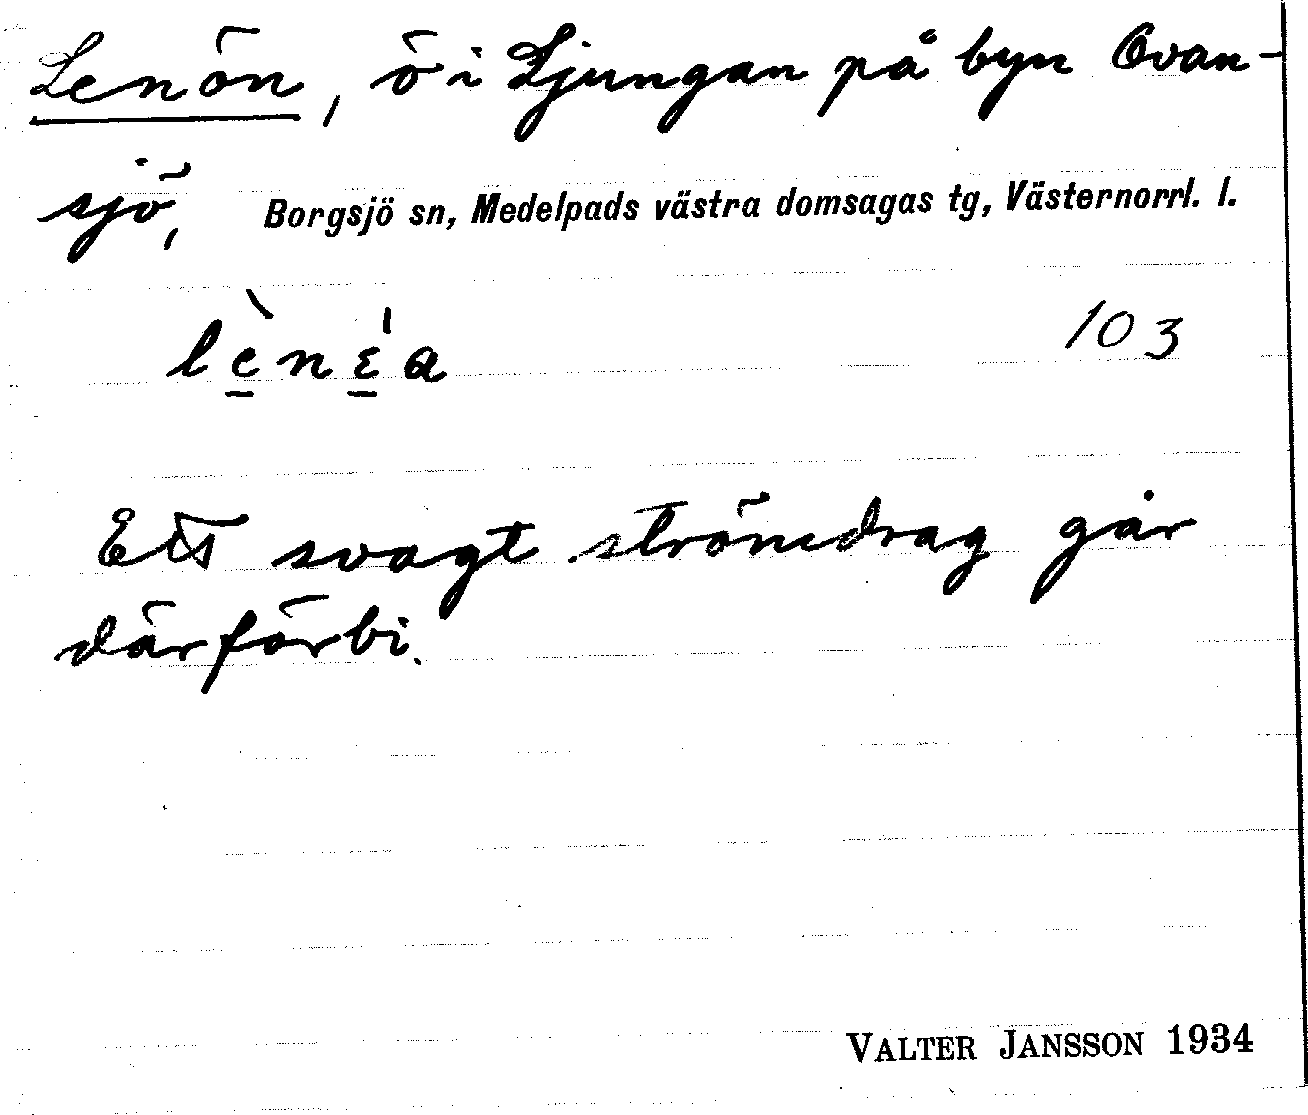 Lenön, ö i Ljungan på byn Ovan-
sjö, Borgsjö sn, Medelpads västra domsagas tg, Västernorrl. l.
lè̠nɛ̠́a 103
Ett svagt strömdrag går
därförbi.
VALTER JANSSON 1934